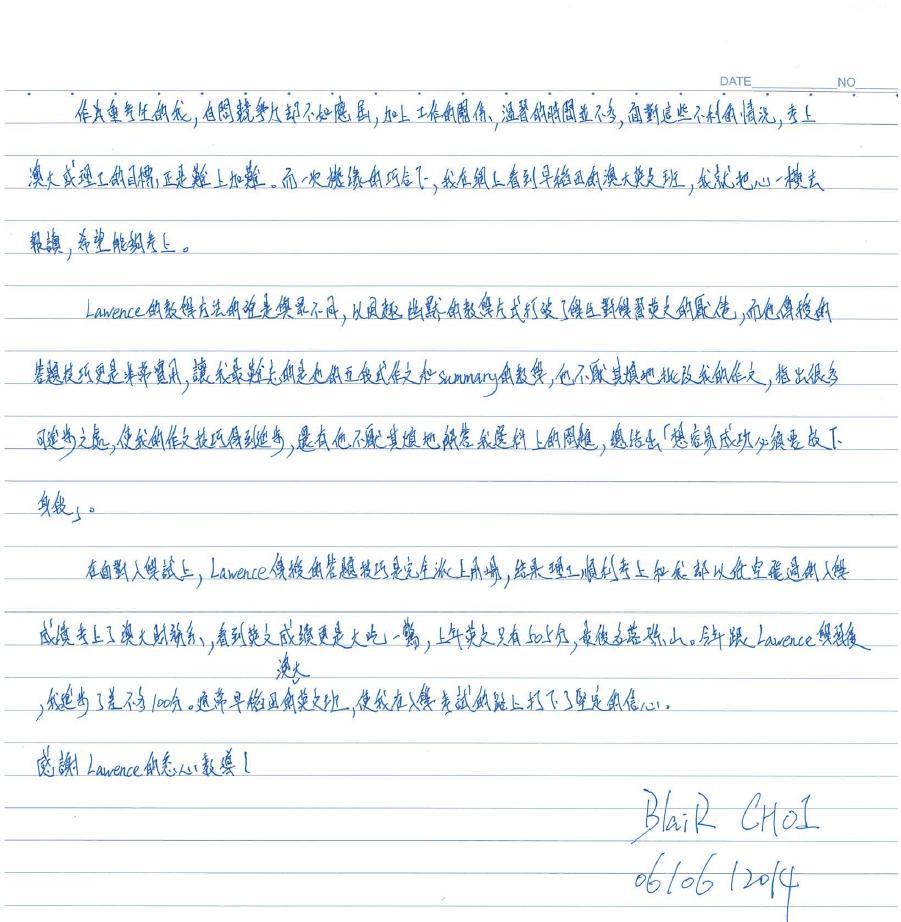 DATE NO
作為重考生的我,自問競爭力卻不如應屆,加上工作的關係,溫習的時間並不多,面對這些不利的情況,考上
澳大或理工的目標,正是難上加難。而一次機緣的巧合下,我在網上看到早稻田的澳大英文班,我就把心一橫去
報讀,希望能夠考上。
Lawence的教學方法的確是與眾不同,以風趣幽默的教學方式打破了學生對學習英文的厭倦,而他傳授的
答題技巧更是非常實用,讓我最難忘的是他的五段式作文和summary的教學,他不厭其煩地批改我的作文,指出很多
可進步之處,使我的作文技巧得到進步,還有他不厭其煩地解答我選科上的問題,總結出「想容易成功必須要放下
身段」。
在面對入學試上,Lawence傳授的答題技巧是完全派上用場,結果理工順利考上和我都以低空飛過的入學
成績考上了澳大財務系,看到英文成績更是大吃一驚,上年英文只有505分,最後名落孫山。今年跟Lawence學習後
澳大
,我進步了差不多100分。通常早稻田的英文班,使我在入學考試的路上打下了堅定的信心。
感謝Lawence的悉心教導!
BlaiR CHOI
06/06/2014